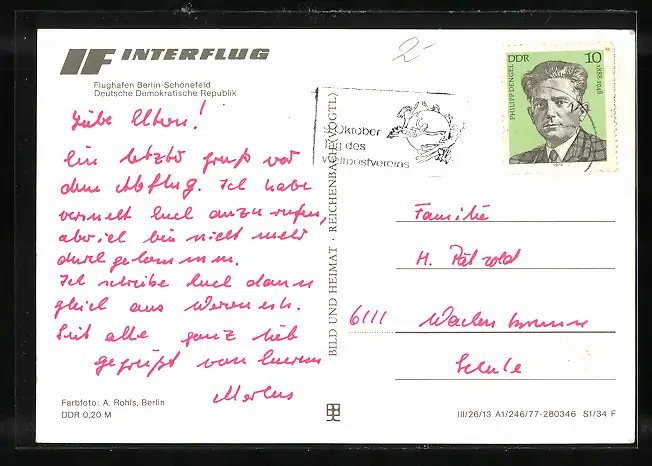 IF INTERFLUG
Flughafen Berlin-Schönefeld
Deutsche Demokratische Republik
2-
Liebe Eltern!
Ein letzter Gruß vor
dem Abflug. Ich habe
versucht Euch anzurufen,
aber ich bin nicht mehr
durchgekommen.
Ich schreibe Euch dann
gleich aus
Seid alle ganz lieb
gegrüßt von Eurem
9. Oktober
Tag des
Weltpostvereins
DDR 10
PHILIPP DENGEL 1888-1948
1979
BILD UND HEIMAT · REICHENBACH (VOGTL)
Familie
H. Pätzold
6111
Schule
Farbfoto: A. Rohls, Berlin
DDR 0,20 M
III/26/13 A1/246/77-280346 S1/34 F